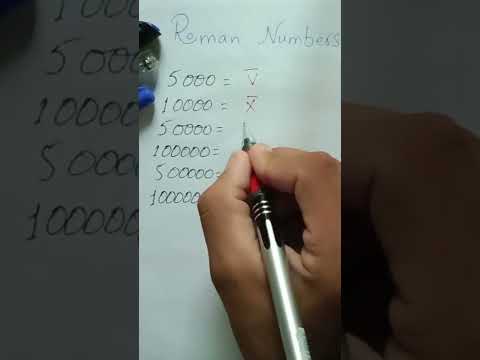 Roman Numbers
5000 = V̅
10000 = X̅
50000 =
100000=
500000=
100000